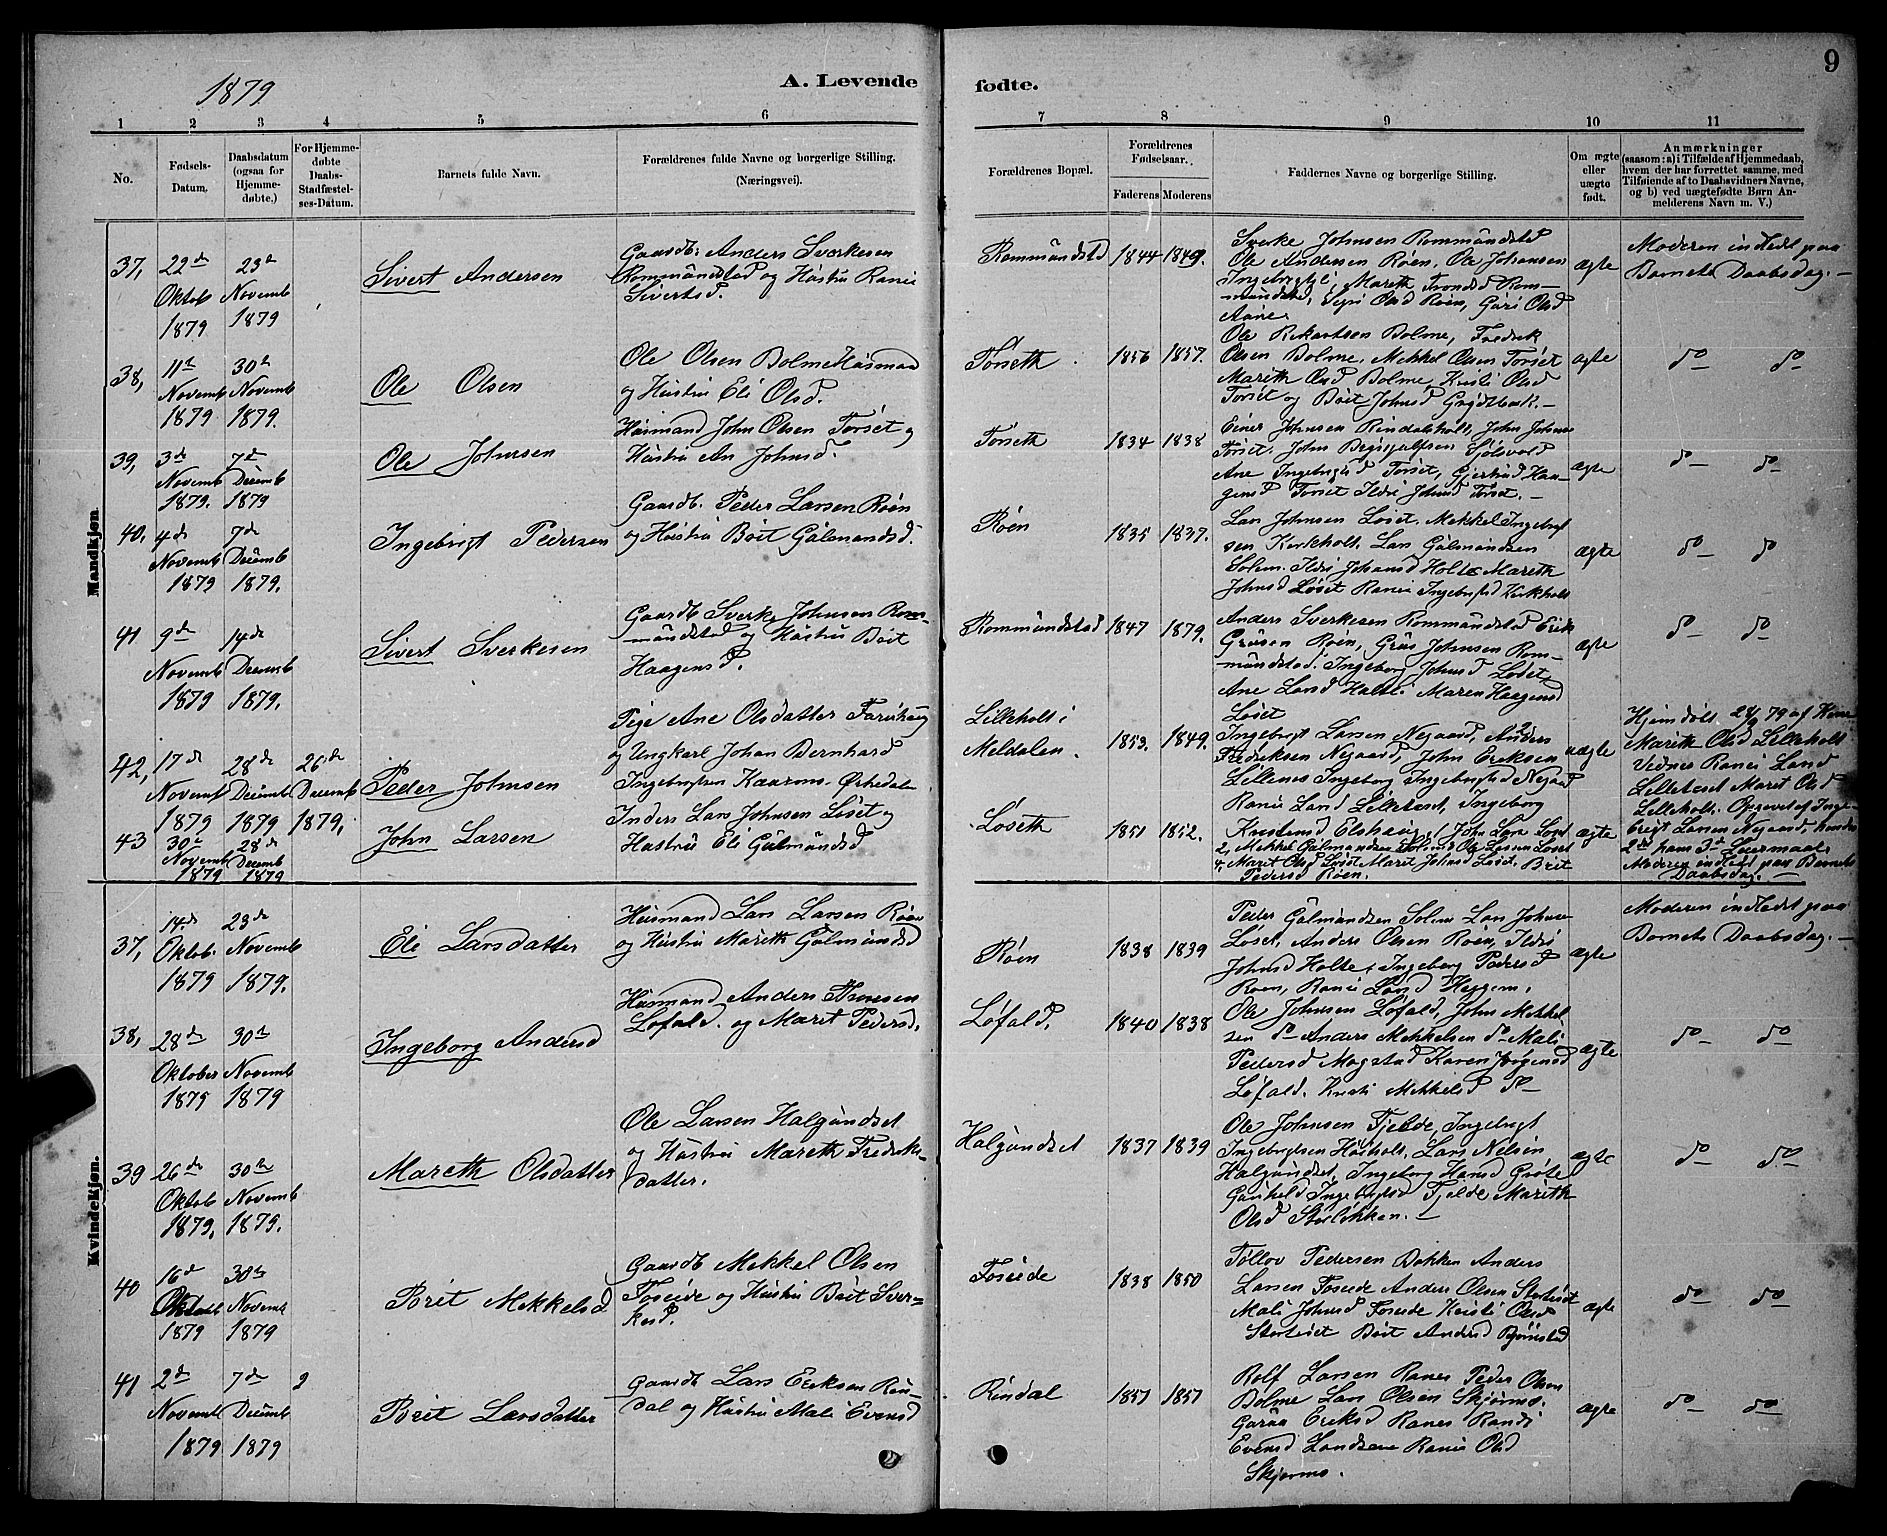 9
1879
A. Levende fødte.
1 2 3 4 5 6 7 8 9 10 11
No.
Fødsels-Datum.
Daabsdatum (ogsaa for Hjemmedøbte.)
For Hjemmedøbte Daabs-Stadfæstelses-Datum.
Barnets fulde Navn.
Forældrenes fulde Navne og borgerlige Stilling. (Næringsvei).
Forældrenes Bopæl.
Forældrenes Fødselsaar.
Faderens Moderens
Faddernes Navne og borgerlige Stilling.
Om ægte eller uægte født.
Anmærkninger
(saasom: a) i Tilfælde af Hjemmedaab,
hvem der har forrettet samme, med
Tilføiende af to Daabsvidners Navne,
og b) ved uægtefødte Børn Anmelderens Navn m. V.)
Mandkjøn
37, 22de Oktob 1879 23de Novemb 1879
Sivert Andersen
Gaardb: Anders Sverkesen
Rommundstad og Hustru Rani
Sivertsd.
Rommundstd 1844 1849.
Sverke Johnsen Rommundstad
Ole Andersen Røen, Ole Johansen
Ingebrigtli, Mareth Trondsd Rommundstad, Sigri Olsd Røen, Guri Olsd
Aune.
ægte
Moderen indledet paa
Barnets Daabsdag.—
38, 11te Novemb 1879 30te Novemb 1879.
Ole Olsen
Ole Olsen Bolme Husmand
og Hustru Eli Olsd.
Torseth 1856 1857.
Ole Rikartsen Bolme, Fredrik
Olsen Bolme, Mekkel Olsen Torset
Marith Olsd Bolme, Kristi Olsd
Torset og Brit Johnsd Grytbæk.—
ægte
do— do—
39, 3de Novemb 1879. 7de Decemb 1879
Ole Johnsen
Husmand John Olsen Torset og
Hustru An Johnsd.
Torseth 1834 1838
Einer Johnsen Rindalsholt, John Johnsen
Torset.
ægte
do— do—
40, 4de Novemb 1879 7de Decemb 1879.
Ingebrigt Pedersen
Gaardb. Peder Larsen Røen
og Hustru Brit Gulmundsd.
Røen 1835 1837.
Lars Johnsen Løset. Mekkel Ingebrigtsen Kirkholt. Lars Gulmundsen
Solem. Ildri Johansd Holte Mareth
Johnsd Løset Rani Ingebrigtsd Kirkholt
ægte
do— do
41 9de Novemb 1879 14de Decemb 1879.
Sivert Sverkesen
Gaardb Sverke Johnsen Rommundstad og Hustru Brit
Haagensd.
Rommundstad 1847 1879.
Anders Sverkesen Rommundstad Erik
Grusen Røen, Grus Johnsen Rommundstad. Ingeborg Johnsd Løset,
Ane Larsd Holte Maren Haagensd
Løset
ægte
do— do—
42, 17de Novemb 1879 28de Decemb 1879 26de Decemb 1879,
Peder Johnsen
Pige Ane Olsdatter
og Ungkarl Johan Bernhard
Ingebrigtsen Kaarøen Ørkedalen
Lilleholt i
Meldalen. 1853. 1849.
Ingebrigt Larsen Nygaard, Anders
Fredriksen Nygaard, John Eriksen
Lillenes Ingeborg Ingebrigtsd Nygaard
Rani Larsd Lilleteset, Ingeborg
Kristensd Elshaug,
uægte
Hjemdøbt
Marith Olsd Lilleholt
Vidner Rani Larsd
Lilleteset Maret Olsd
Lilleholt. Opgivet af Ingebrigt Larsen Nygaard,
2det hans 3de Leiermaal.
43 30te Novemb 1879 28de Decemb 1879
John Larsen
Inders Lars Johnsen Løset og
Hustru Eli Gulmundsd
Løseth 1851 1852.
1, John Larsen Løset
2, Mekkel Gulmundsen Solem 3, Ole Larsen Løset
4, Maret Olsd Løset Maret Johnsd Løset. Brit
Pedersd Røen.
ægte
Moderen indledt paa Barnets
Daabsdag.—
Kvindekjøn.
37, 14de Oktob. 1879 23de Novemb 1879.
Eli Larsdatter
Husmand Lars Larsen Røen
og Hustru Mareth Gulmundsd
Røen 1838 1839
Peder Gulmundsen Solem Lars Johnsen
Løset, Anders Olsen Røen, Ildri
Johnsd Holte, Ingeborg Pedersd
Røen, Rani Larsd Heggem.
ægte
Moderen indledet paa
Barnets Daabsdag.—
38, 28de Oktober 1879 30te Novemb 1879
Ingeborg Andersd
Husmand Anders
Løfald. og Maret Pedersd.
Løfald, 1840 1838
Ole Johnsen Løfald, John Mekkelsen do— Anders Mekkelsen do— Mali
Pedersd Mogstad Karen Jørgensd
Løfald. Kristi Mekkelsd do—
ægte
do— do—
39 26de Oktob 1879, 30te Novemb 1879.
Mareth Olsdatter
Ole Larsen Halgundset
og Hustru Mareth Fredriksdatter.
Halgundset 1837 1839
Ole Johnsen Fjelde, Ingebrigt
Ingebrigtsen Husholt, Lars Nelsen
Halgundset, Ingeborg Hansd Grøte
Gunhild Ingebrigtsd Fjelde Marith
Olsd Storløkken.—
ægte
do— do—
40 16de Oktob 1879 30te Novemb 1879
Brit Mekkelsd
Gaardb Mekkel Olsen
Foseide og Hustru Brit Sverkesd.
Foseide 1838 1850
Tollov Pedersen Bakken Anders
Larsen Foseide Anders Olsen Storteset
Mali Johnsd Foseide Kristi Olsd
Storteset Brit Andersd Bjørnstad
ægte
do— do—
41 2de Novemb 1879 7de Decemb 1879 2
Brit Larsdatter
Gaardb Lars Eriksen Rindal og Hustru Mali Evensd
Rindal 1857 1857
Rolf Larsen Ranes Peder Olsen
Bolme Lars Olsen Skjermo.
Gurua Eriksd Ranes Randi
Evensd Landsem Rani Olsd
Skjermo.
ægte
do— do—